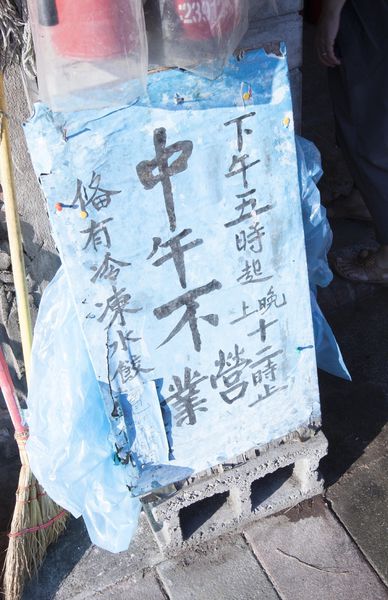 下午五時起晚上十二時止
中午不營業
備有冷凍水餃